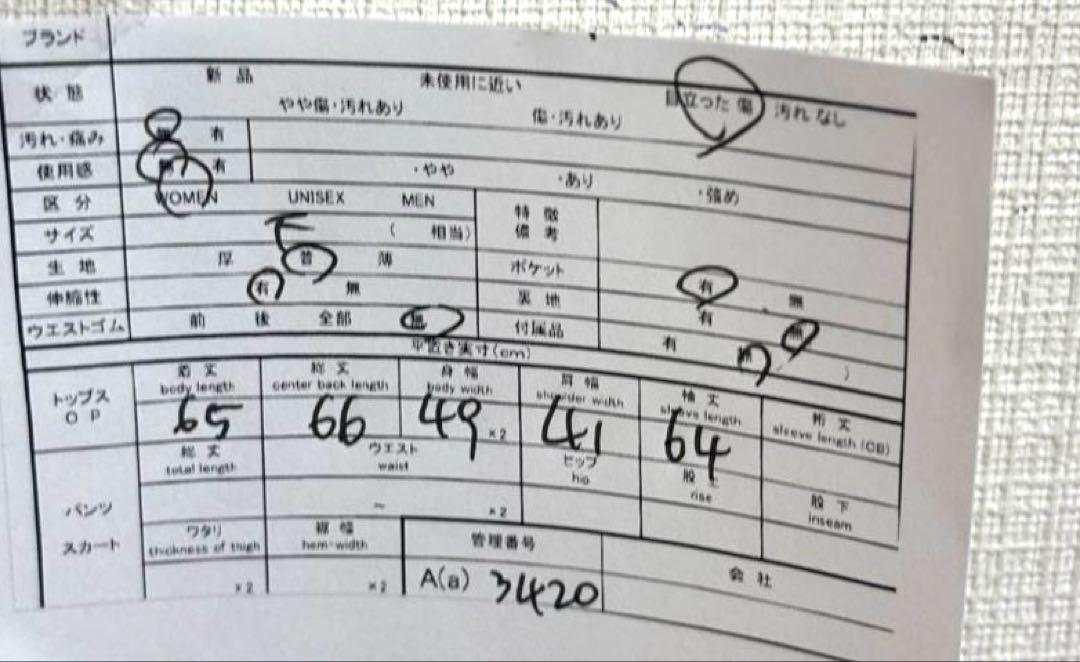 ブランド
状態 新品 未使用に近い 目立った傷 汚れなし
やや傷・汚れあり 傷・汚れあり
汚れ・痛み 無 有
使用感 無 有 ・やや ・あり ・強め
区分 WOMEN UNISEX MEN 特徴
サイズ ( 相当) 備考
生地 厚 普 薄 ポケット 有 無
伸縮性 有 無 裏地 有 無
ウエストゴム 前 後 全部 無 付属品 有 無 )
平置き実寸(cm)
トップス 着丈 総丈 身幅 肩幅 袖丈 裄丈
OP body length center back length body width shoulder width sleeve length sleeve length (CB)
65 66 49 ×2 41 64
パンツ 総丈 ウエスト ヒップ 股上 股下
total length waist hip rise inseam
~ ×2
スカート ワタリ 裾幅 管理番号 会社
thickness of thigh hem-width
×2 ×2 A(a) 3420